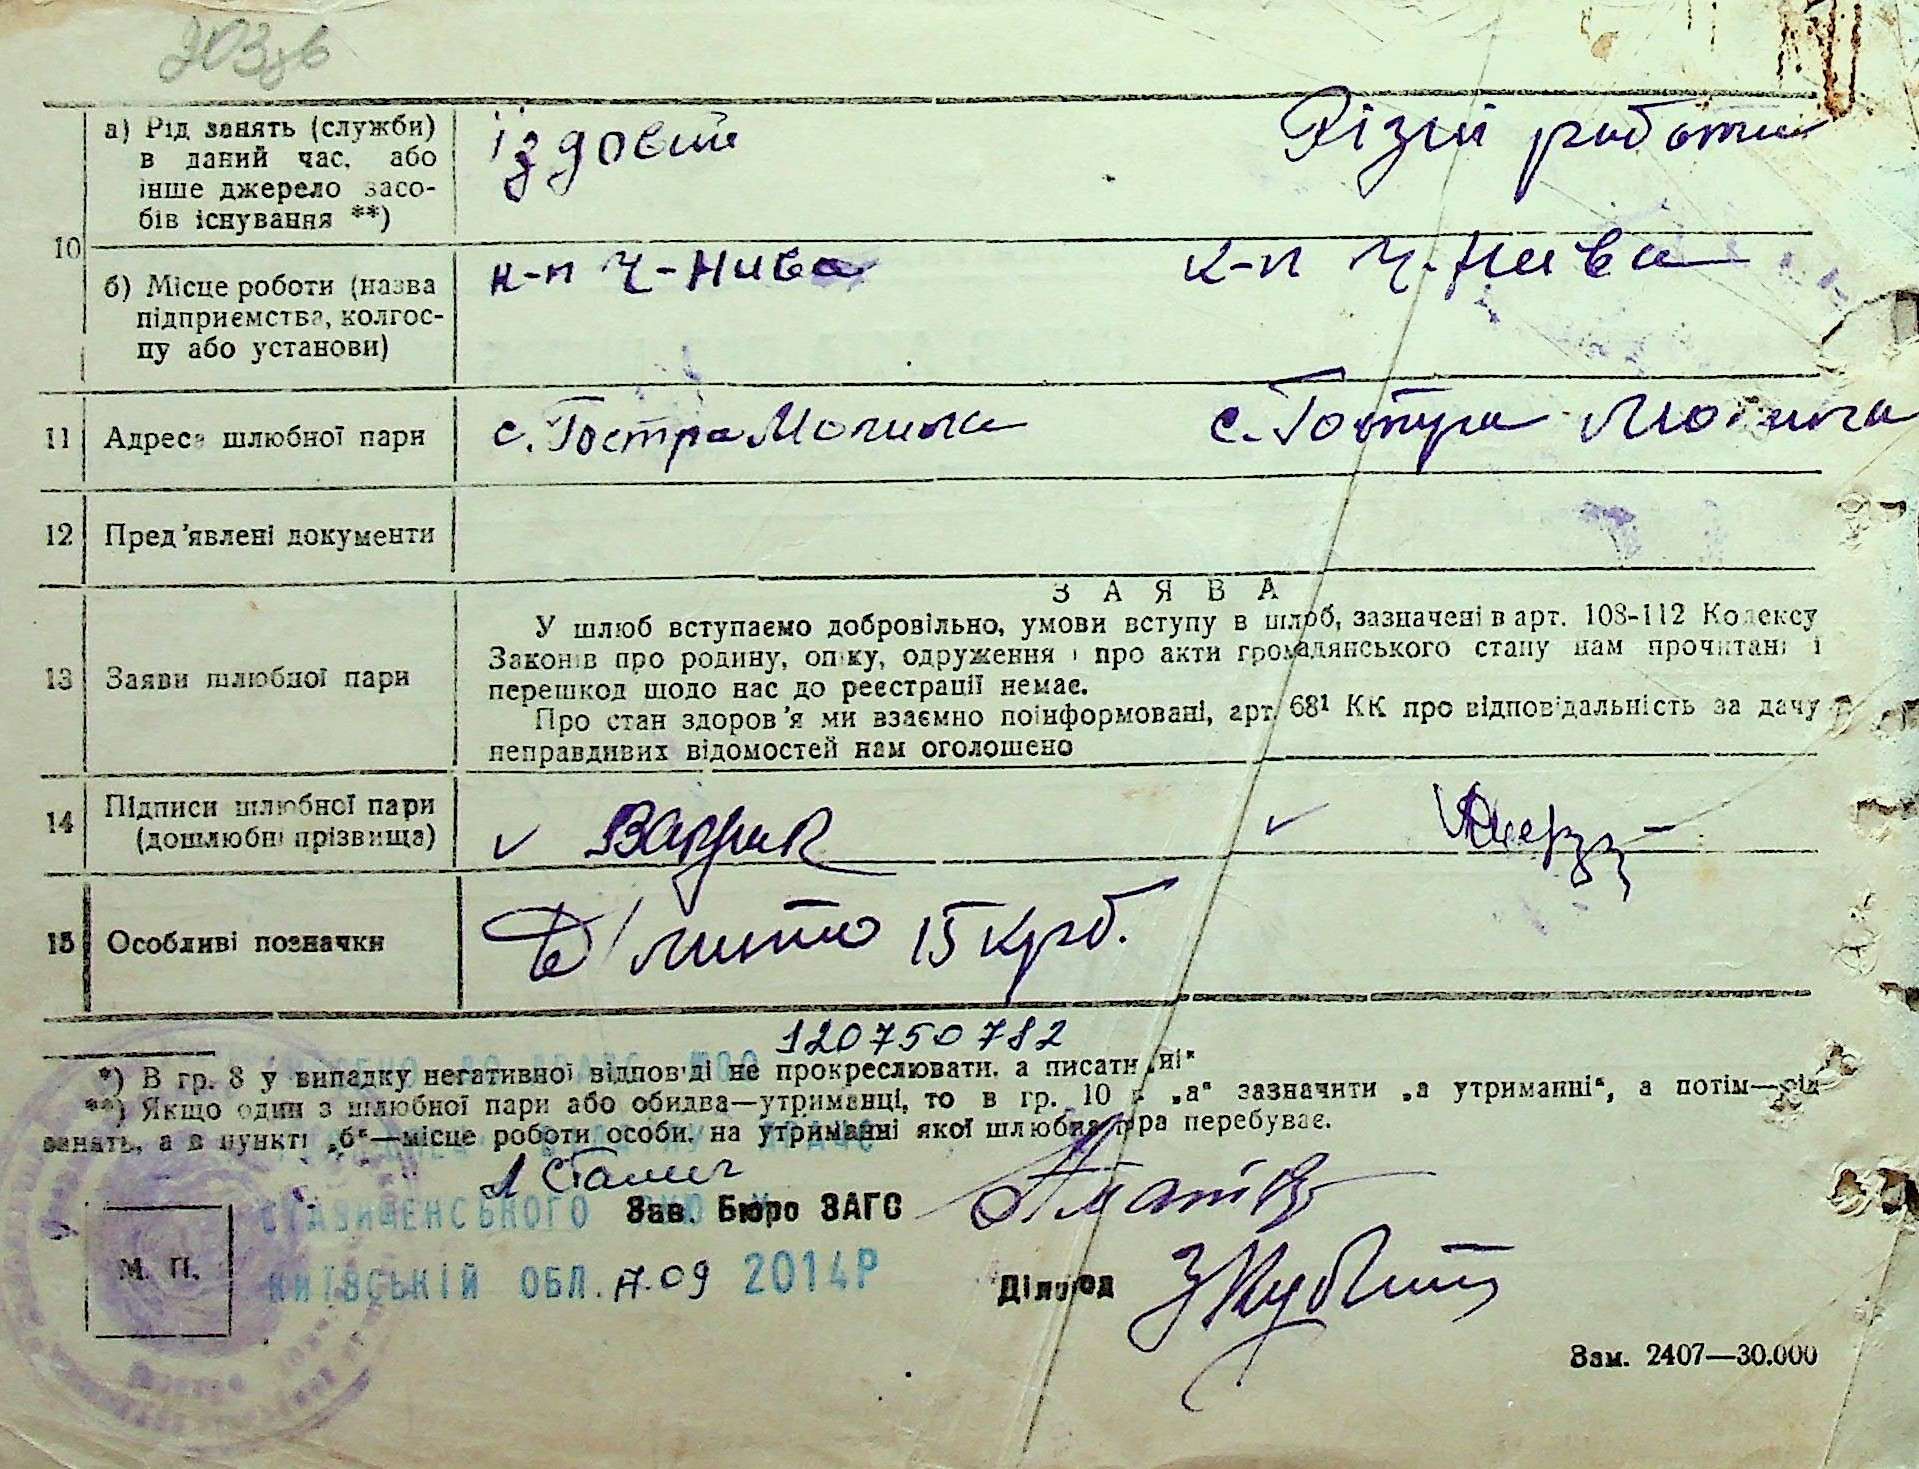 203зв
10
а) Рід занять (служби) в даний час, або інше джерело засобів існування **)
їздовий
Різні роботи
б) Місце роботи (назва підприємства, колгоспу або установи)
к-п Ч-Нива
к-п Ч-Нива
11 Адреса шлюбної пари
с. Гостра Могила
с. Гостра Могила
12 Пред'явлені документи
13 Заяви шлюбної пари
ЗАЯВА
У шлюб вступаємо добровільно, умови вступу в шлюб, зазначені в арт. 108-112 Кодексу
Законів про родину, опіку, одруження і про акти громадянського стану нам прочитані і
перешкод щодо нас до реєстрації немає.
Про стан здоров'я ми взаємно поінформовані, арт. 68¹ КК про відповідальність за дачу
неправдивих відомостей нам оголошено
14 Підписи шлюбної пари (дошлюбні прізвища)
15 Особливі позначки
мито 15 крб.
120750782
*) В гр. 8 у випадку негативної відповіді не прокреслювати, а писати „ні“
**) Якщо один з шлюбної пари або обидва—утриманці, то в гр. 10 п. „а“ зазначити „а утриманні“, а потім—рід
занять, а в пункті „б“—місце роботи особи, на утриманні якої шлюбна пара перебуває.
СТАВИЩЕНСЬКОГО
Зав. Бюро ЗАГС
М. П.
КИЇВСЬКІЙ ОБЛ. 17.09 2014Р
Діловод
Зам. 2407—30.000